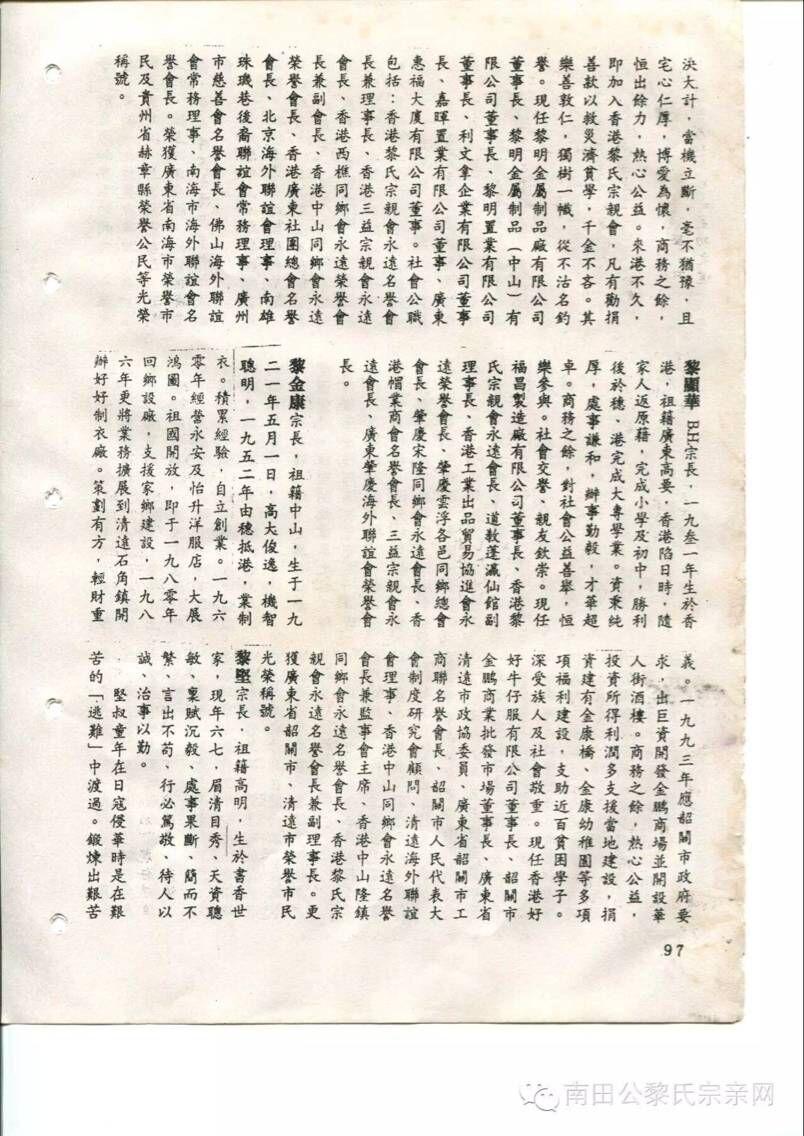 決大計，當機立斷，毫不猶豫，且
宅心仁厚，博愛為懷，商務之餘，
恒出餘力，熱心公益。來港不久，
即加入香港黎氏宗親會，凡有勸捐
善款以救災濟貧學，千金不吝。其
樂善敦仁，獨樹一幟，從不沽名釣
譽。現任黎明金屬制品廠有限公司
董事長、黎明金屬制品（中山）有
限公司董事長、黎明置業有限公司
董事長、利文拿企業有限公司董事
長、嘉暉置業有限公司董事、廣東
惠福大廈有限公司董事。社會公職
包括：香港黎氏宗親會永遠名譽會
長兼理事長、香港三益宗親會永遠
會長、香港西樵同鄉會永遠榮譽會
長兼副會長、香港中山同鄉會永遠
榮譽會長、香港廣東社團總會名譽
會長、北京海外聯誼會理事、南雄
珠璣巷後裔聯誼會常務理事、廣州
市慈善會名譽會長、佛山海外聯誼
會常務理事、南海市海外聯誼會名
譽會長。榮獲廣東省南海市榮譽市
民及貴州省赫章縣榮譽公民等光榮
稱號。
黎顯華 B.H宗長，一九叁一年生於香
港，祖籍廣東高要，香港陷日時，隨
家人返原籍，完成小學及初中，勝利
後於穗、港完成大專學業。資秉純
厚，處事謙和，辦事勤毅，才華超
卓。商務之餘，對社會公益善舉，恒
樂參與。社會交譽、親友欽崇。現任
福昌製造廠有限公司董事長、香港黎
氏宗親會永遠會長、道教蓬瀛仙館副
理事長、香港工業出品貿易協進會永
遠榮譽會長、肇慶雲浮各邑同鄉總會
會長、肇慶宋隆同鄉會永遠會長、香
港帽業商會名譽會長、三益宗親會永
遠會長、廣東肇慶海外聯誼會榮譽會
長。
黎金康宗長，祖籍中山，生于一九
二一年五月一日，高大俊逸，機智
聰明，一九五二年由穗抵港，業制
衣。積累經驗，自立創業。一九六
零年經營永安及怡升洋服店，大展
鴻圖。祖國開放，即于一九八零年
回鄉設廠，支援家鄉建設，一九八
六年更將業務擴展到清遠石角鎮開
辦好好制衣廠。策劃有方，輕財重
義。一九九三年應韶關市政府要
求，出巨資開發金鵬商場並開設華
人街酒樓。商務之餘，熱心公益，
投資所得利潤多支援當地建設，捐
資建有金康橋、金康幼稚園等多項
項福利建設，支助近百貧困學子。
深受族人及社會敬重。現任香港好
好牛仔服有限公司董事長、韶關市
金鵬商業批發市場董事長、廣東省
清遠市政協委員、廣東省韶關市工
商聯名譽會長、韶關市人民代表大
會制度研究會顧問、清遠海外聯誼
會理事、香港中山同鄉會永遠名譽
會長兼監事會主席、香港中山隆鎮
同鄉會永遠名譽會長、香港黎氏宗
親會永遠名譽會長兼副理事長。更
獲廣東省韶關市、清遠市榮譽市民
光榮稱號。
黎堅宗長，祖籍高明，生於書香世
家，現年六七，眉清目秀、天資聰
敏、稟賦沉毅、處事果斷、簡而不
繁、言出不苟、行必篤敬、待人以
誠、治事以勤。
堅叔童年在日寇侵華時是在艱
苦的「逃難」中渡過。鍛煉出艱苦
97
南田公黎氏宗亲网